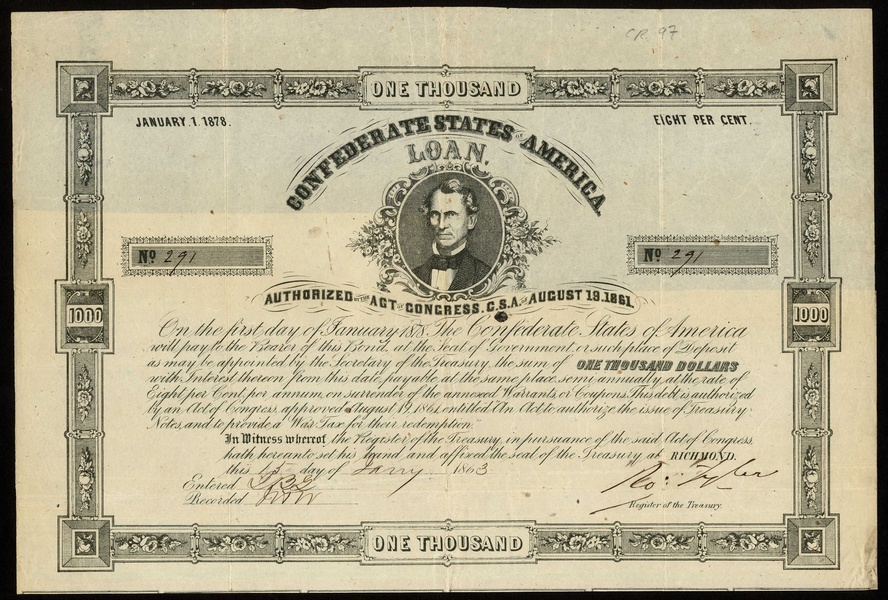 CR 97
ONE THOUSAND
JANUARY.1.1878.
EIGHT PER CENT.
CONFEDERATE STATES OF AMERICA.
LOAN.
No 291
No 291
AUTHORIZED BY THE ACT OF CONGRESS, C.S.A. OF AUGUST 19.1861.
1000
1000
On the first day of January 1878. The Confederate States of America
will pay to the Bearer of this Bond, at the Seat of Government, or such place of Deposit
as may be appointed by the Secretary of the Treasury, the sum of ONE THOUSAND DOLLARS
with Interest thereon from this date, payable at the same place semi-annually, at the rate of
Eight per Cent, per annum, on surrender of the annexed Warrants, or Coupons. This debt is authorized
by an Act of Congress, approved August 19, 1861, entitled An Act to authorize the issue of Treasury
Notes, and to provide a War Tax for their redemption.
In Witness whereof the Register of the Treasury, in pursuance of the said Act of Congress,
hath hereunto set his hand and affixed the seal of the Treasury at RICHMOND.
this 15 day of Jany 1863
Entered
Ro: Tyler
Recorded
Register of the Treasury
ONE THOUSAND